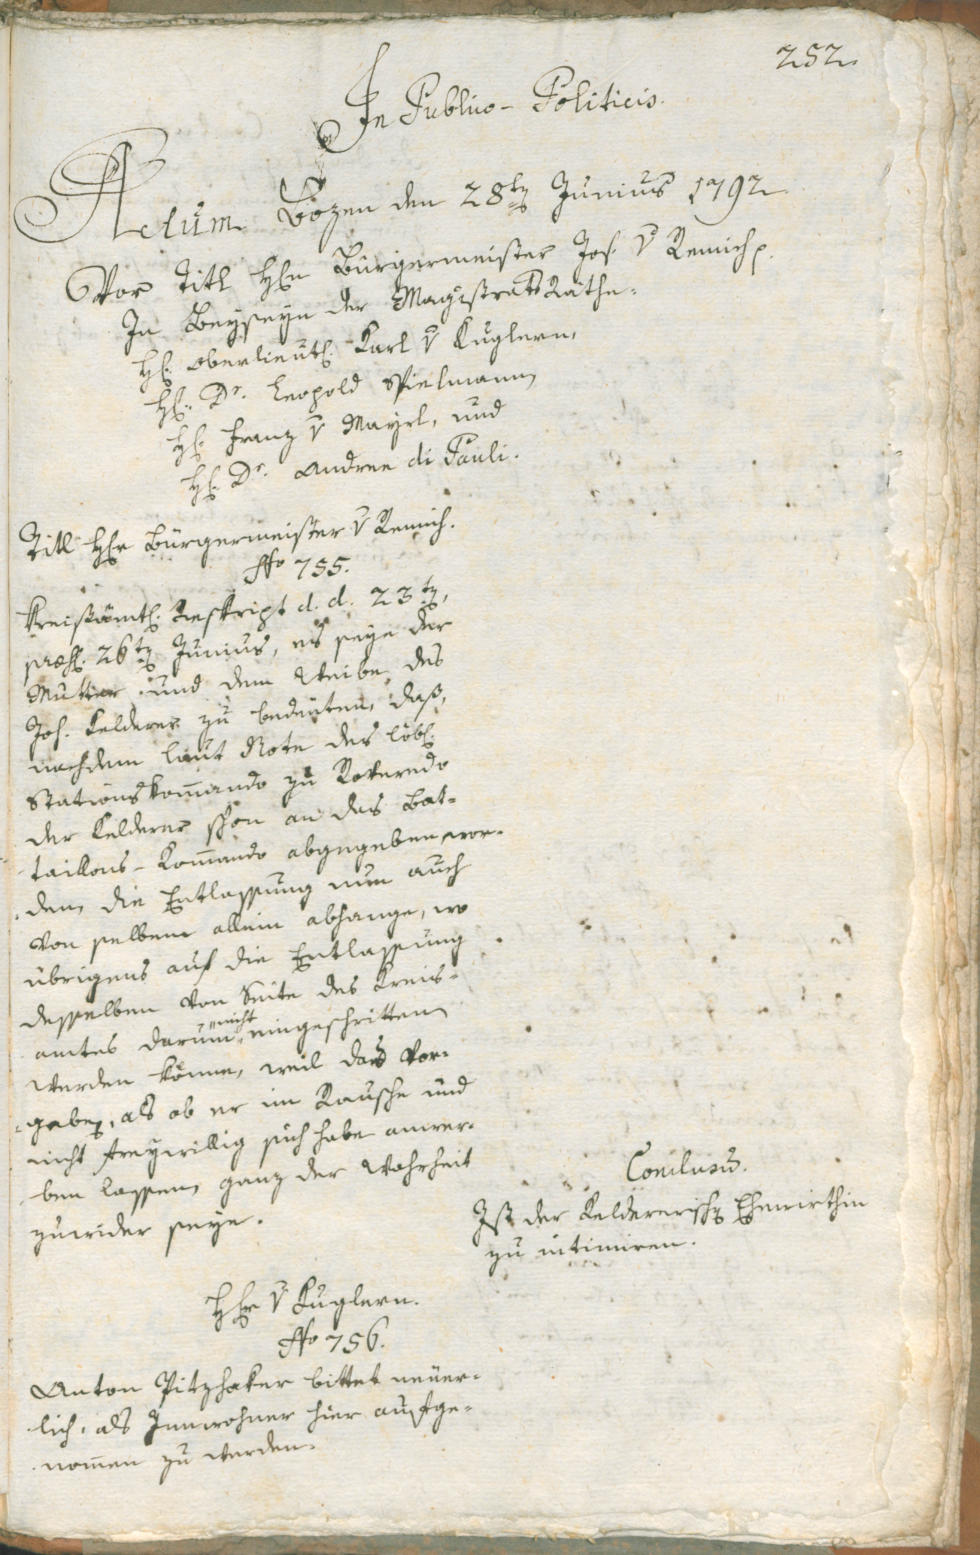 252.
In Publico-Politicis.
Actum Bozen den 28tn Junius 1792
Vor Titl Hrn Bürgermeister Jos. v Remich.
In Beyseyn der Magistrats Räthe.
H. Oberlieut. Karl v Kuglern,
H. Dr. Leopold Spielmann
H. Franz v Mayrl, und
H. Dr. Andree di Pauli.
Titl Hr Bürgermeister v Remich.
No 755.
Kreisämtl. Reskript d. d. 23tn,
præs. 26tn Junius, es seye der
Mutter und dem Weibe des
Jos. Kelderer zu bedeuten, daß,
nachdem laut Note des löbl.
Stationskommando zu Roveredo
der Kelderer schon an das Bat-
taillons-Kommando abgegeben wor-
den, die Entlassung nun auch
von selbem allein abhange, wo
übrigens auf die Entlassung
desselben von Seite des Kreis-
amtes darum nicht eingeschritten
werden könne, weil das Vor-
geben, als ob er im Rausche und
nicht freywillig sich habe anwer-
ben lassen, ganz der Wahrheit
zuwider seye.
Conclusum.
Ist der Keldererischen Ehewirthin
zu intimiren.
Hr v Kuglern.
No 756.
Anton Pitzhaker bittet neuer-
lich, als Innwohner hier aufge-
nommen zu werden.